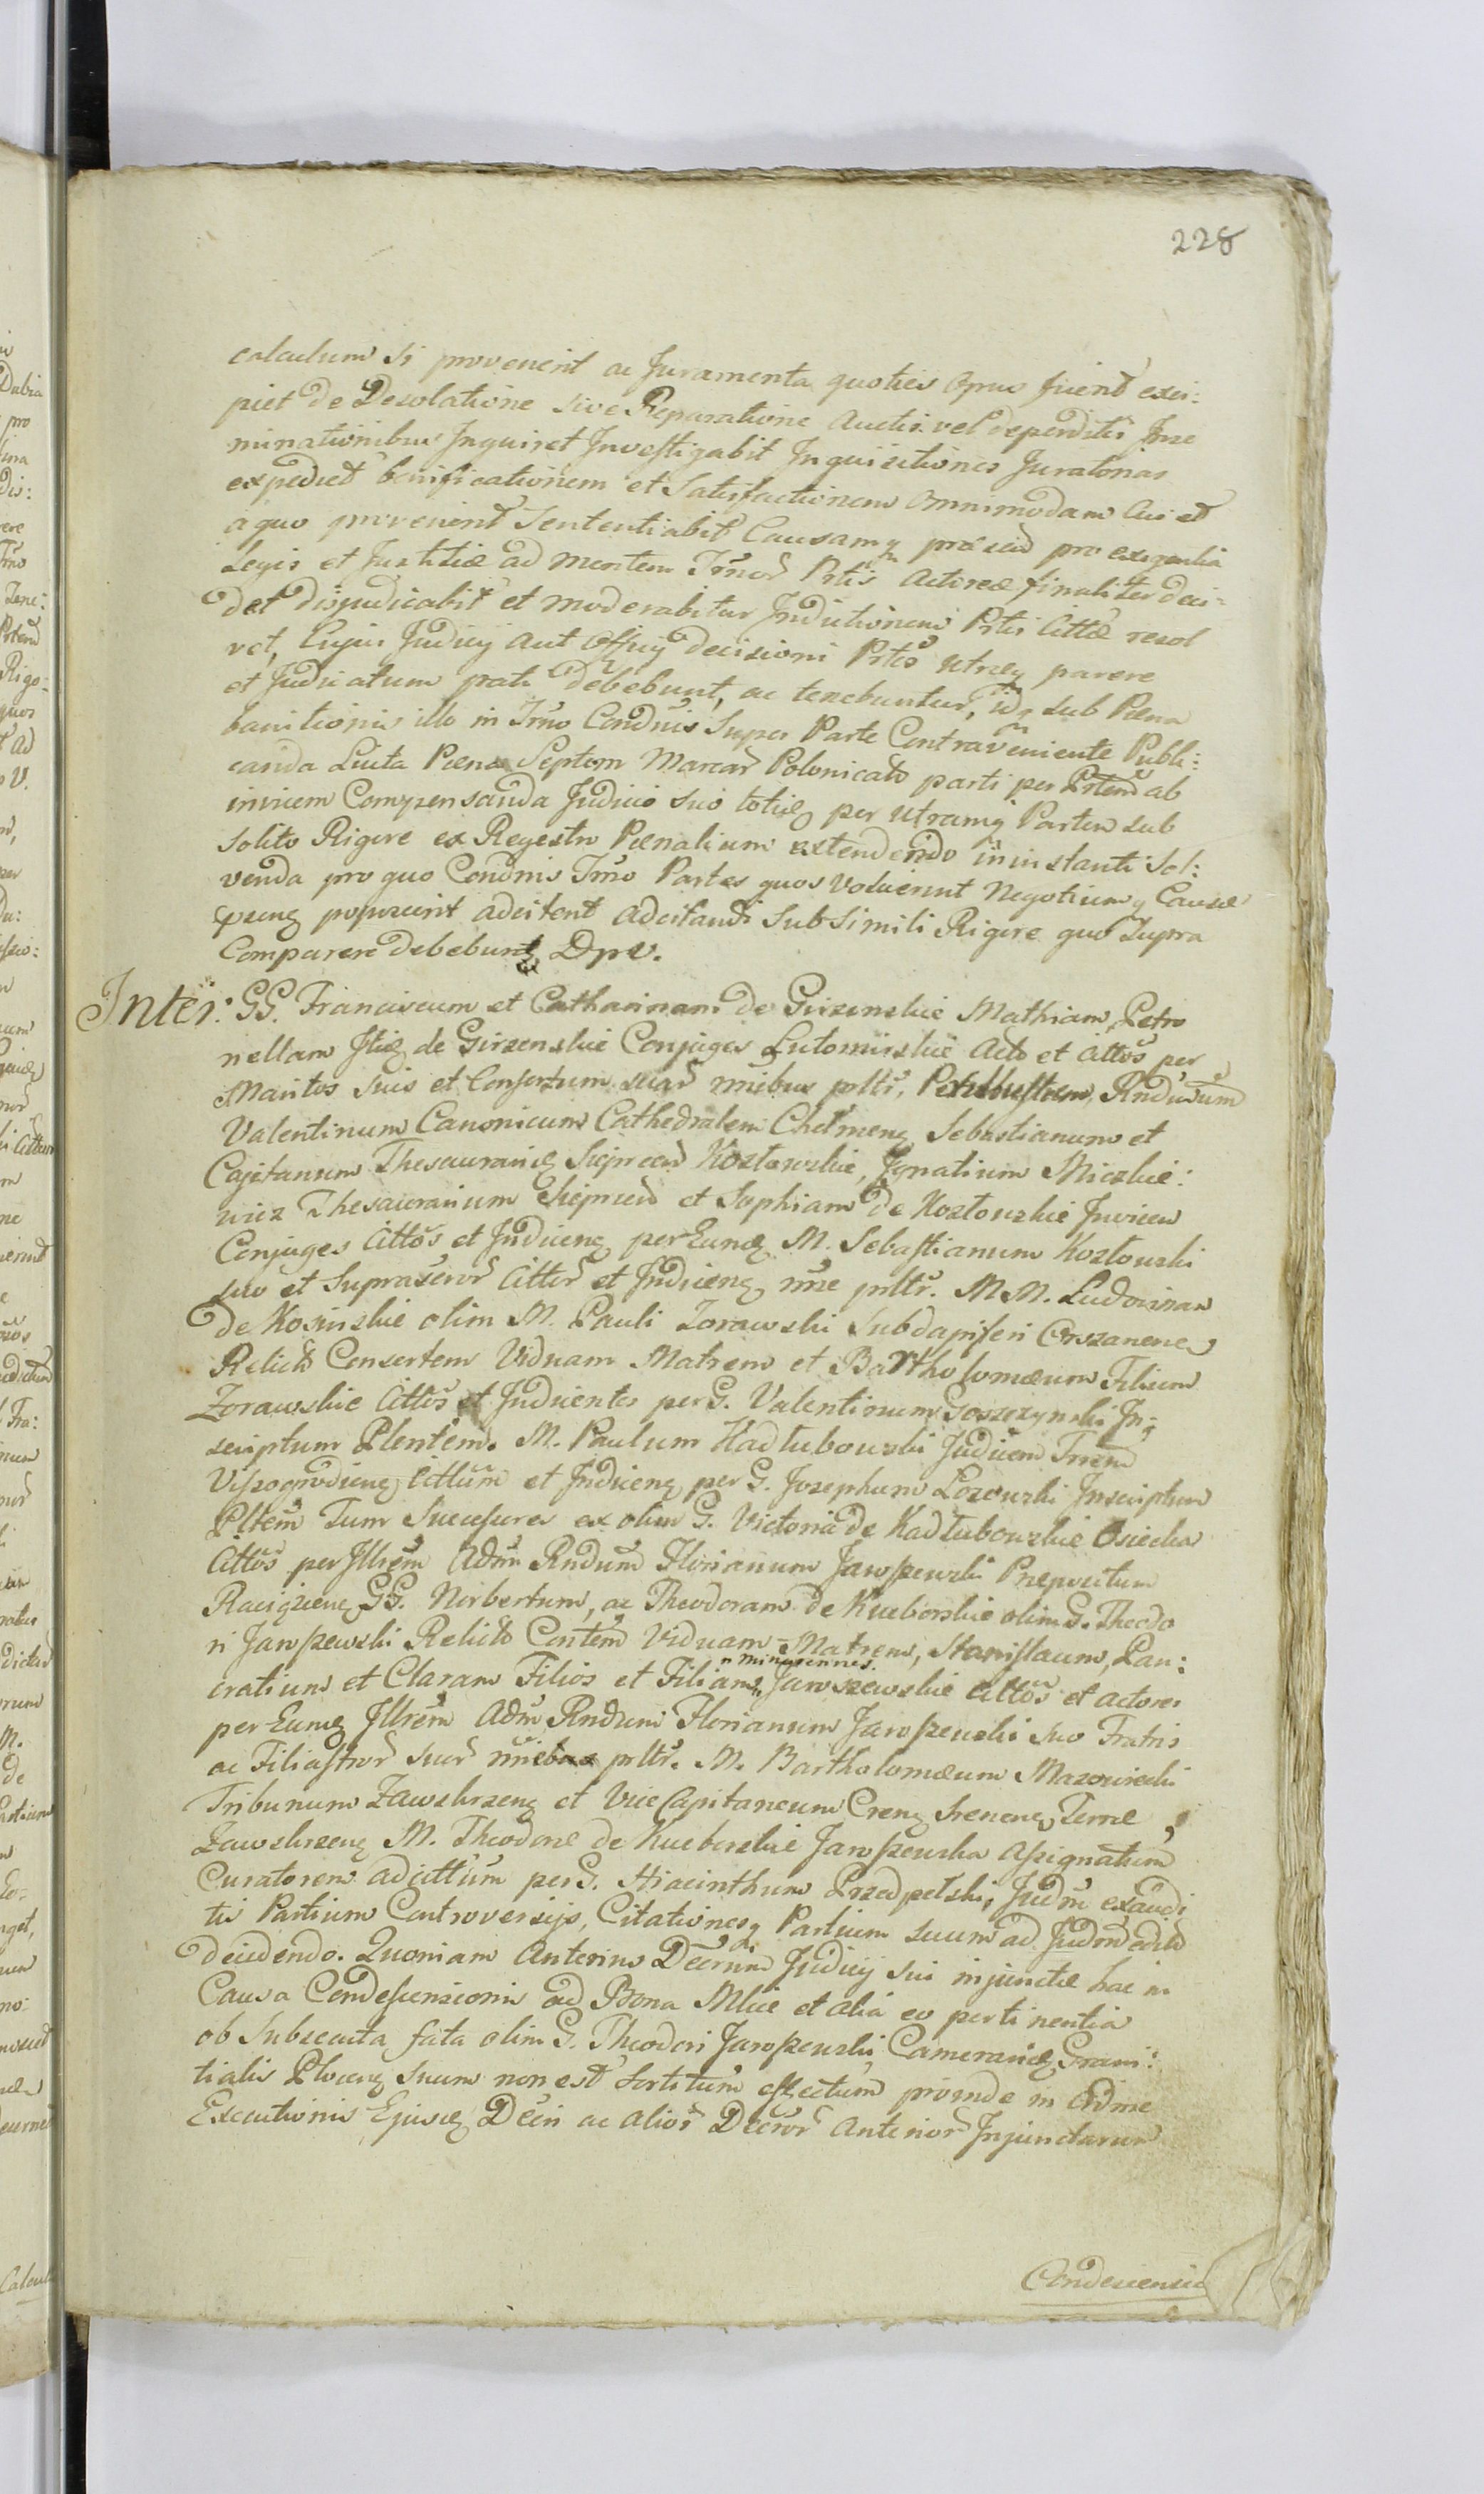 228
calculum si provenerit ac Juramenta quoties Opus fuerit exci:
piet de Desolatione sive Reparatione Auctis vel deperditis Inse
minationibus Inquiret Investigabit Inquisitiones Juratorias
expediet bonificationem et Satisfactionem Omnimodam Cui et
a quo provenerit Sententiabit Causamq pro exigentia
Legis et Justitiæ ad mentem Prtis Actoreæ finaliter deci:
det dijudicabit et moderabitur Inductionem Prtis Cittæ resol
vet, Cujus Judicij Aut Officij decisioni Prtes utræq parere
et Judicatum pati debebunt, ac tenebuntur, idq sub Pæna
banitionis illo in Trno Condnis Super Parte Contraveniente Publi:
canda Luita Pæna Septem Marcar Polonicalo parti per Prtem ab
invicem Compensanda Judicio suo totiq per utramq Partem sub
Solito Rigore ex Regestro Pænalium extendendo in instanti Sol:
venda pro quo Condnis Trno Partes quos Voluerint Negotiumq Causæ
poposcerit adcitent Adcitandi Sub Simili Rigore quo Supra
Comparere debebunt, Dprl.
Inter: GG. Franciscum et Catharinam de Girzenskie Mathiam, Petro
nellam Itiq de Girzenskie Conjuges Lutomirskie Acto et Cittos per
Maritos suis et Consortum suar nnibus prltr, Perillustrem, Rndum
Valentinum Canonicum Cathedralem Chelmenq Sebastianum et
Cajetanum Thesaurariq Sieprcen Kozłowskie, Ignatium Mickie:
wicz Thesaurarium et Sophiam de Kozłowskie Invicem
Conjuges Cittos et Inducenq per Eunq M. Sebastianum Kozłowski
suo et Suprascror Cittor et Inducenq nne prltr. M M. Ludovicam
de Kosinskie olim M. Pauli Zorawski Subdapiferi Orszanene
Relicto Consertem Viduam Matrem et Bartholomæum Filium
Zorawskie Cittos et Inducentes per G. Valentinum Goszczynski In:
scriptum Plentem. M. Paulum Kadłubowski Judicem Trrem
Viszogrodienq Cittum et Inducenq per G. Josephum Lozowski Inscriptum
Pltem Tum Succesures ex olim G. Victoria de Kadłubowskie Osiecka
Cittos per Jllrem Adm Rndum Florianum Jaroszewski Prepositum
Raciązienq GG. Norbertum, ac Theodoram de Kueborskie olim G. Theodo
ri Jaroszewski Relicto Contem Viduam Matrem, Stanislaum, Pan:
cratium et Claram Filios et Filiam " minorennes. " Jaroszewskie Cittos et actores
per Eunq Jllrem Adm Rndum Florianum Jaroszewski suo Fratris
ac Filiastror suor nnibus prltr. M. Bartholomæum Mazowiecki
Tribunum Zawskrzenq et Vice Capitaneum Crenq Srenenq Terræ
Zawskrzenq M. Theodoræ de Kueborskie Jaroszewska Assignatum
Curatorem adcittum per G. Hiacinthum Przedpelski, Judm exaudi
tis Partium Controversijs, Citationesq Partium suum ad Judm
decidendo. Quoniam Anterius Decrum Judicij sui injunctæ hac in
Causa Condescensionis ad Bona Mlice et alia eo pertinentia
ob Subsecuta fata olim G. Theodori Jaroszewski Camerariq Grani:
tialis Plocenq Suum non est Sortitum effectum proinde in Ordine
Executionis Ejusq Decri ac alior Decror Anterior Injunctarum
Condescensio